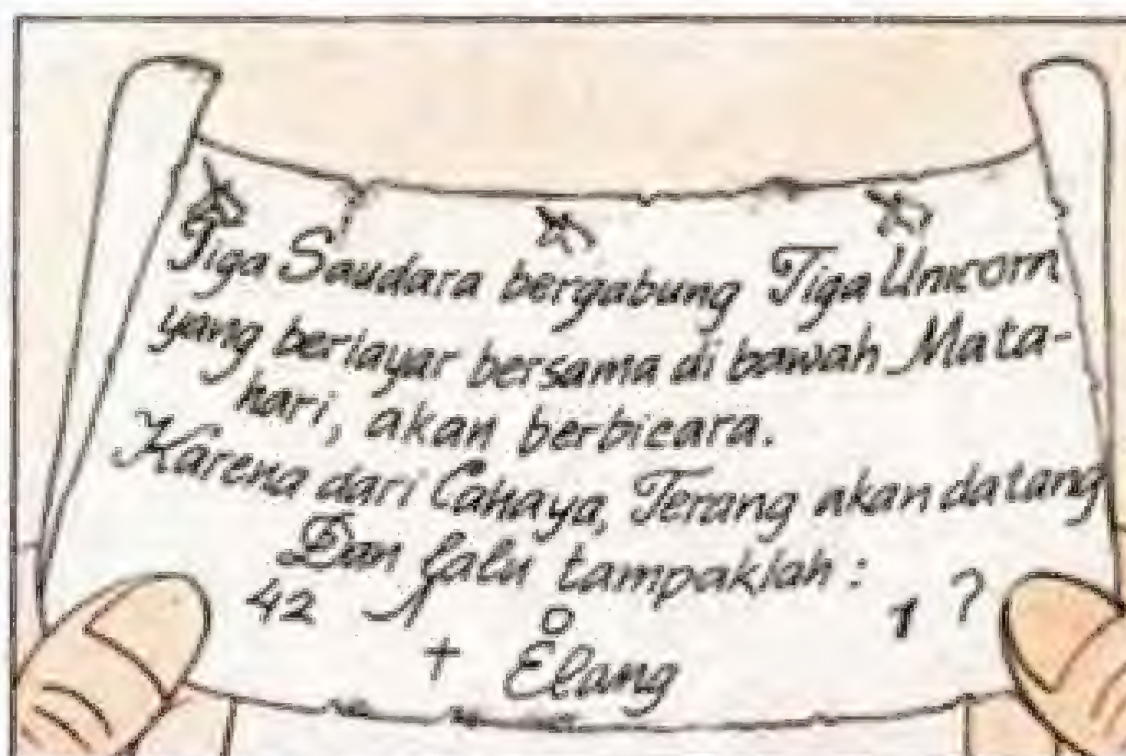 Tiga Saudara bergabung Tiga Unicorn
yang berlayar bersama di bawah Mata-
hari, akan berbicara.
Karena dari Cahaya, Terang akan datang
Dan lalu tampaklah :
42 1 ?
+ Elang